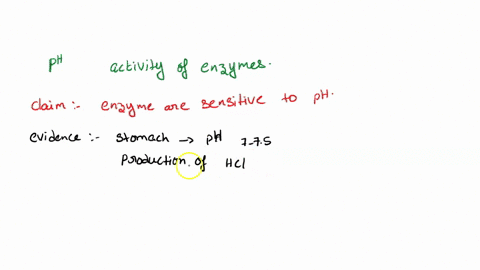 pH activity of enzymes.
claim :- enzyme are sensitive to pH.
evidence :- stomach → pH 7-7.5
Production of HCl